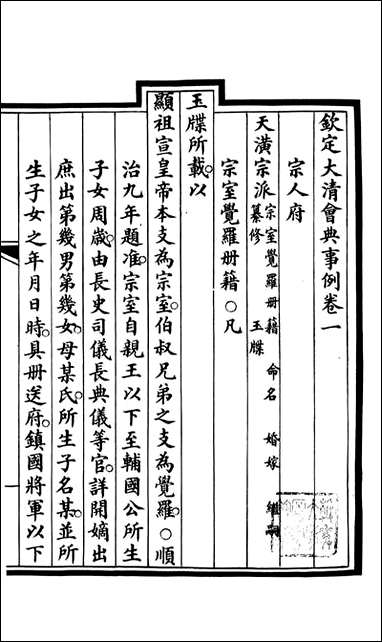 欽定大清會典事例卷一
宗人府
天潢宗派 宗室覺羅冊籍 命名 婚嫁 繼嗣
纂修 玉牒
宗室覺羅冊籍○凡
玉牒所載。以
顯祖宣皇帝本支為宗室。伯叔兄弟之支為覺羅。○順
治九年題准。宗室自親王以下至輔國公所生
子女周歲。由長史司儀長典儀等官。詳開嫡出
庶出第幾男第幾女。母某氏。所生子名某。並所
生子女之年月日時。具冊送府。鎮國將軍以下
一